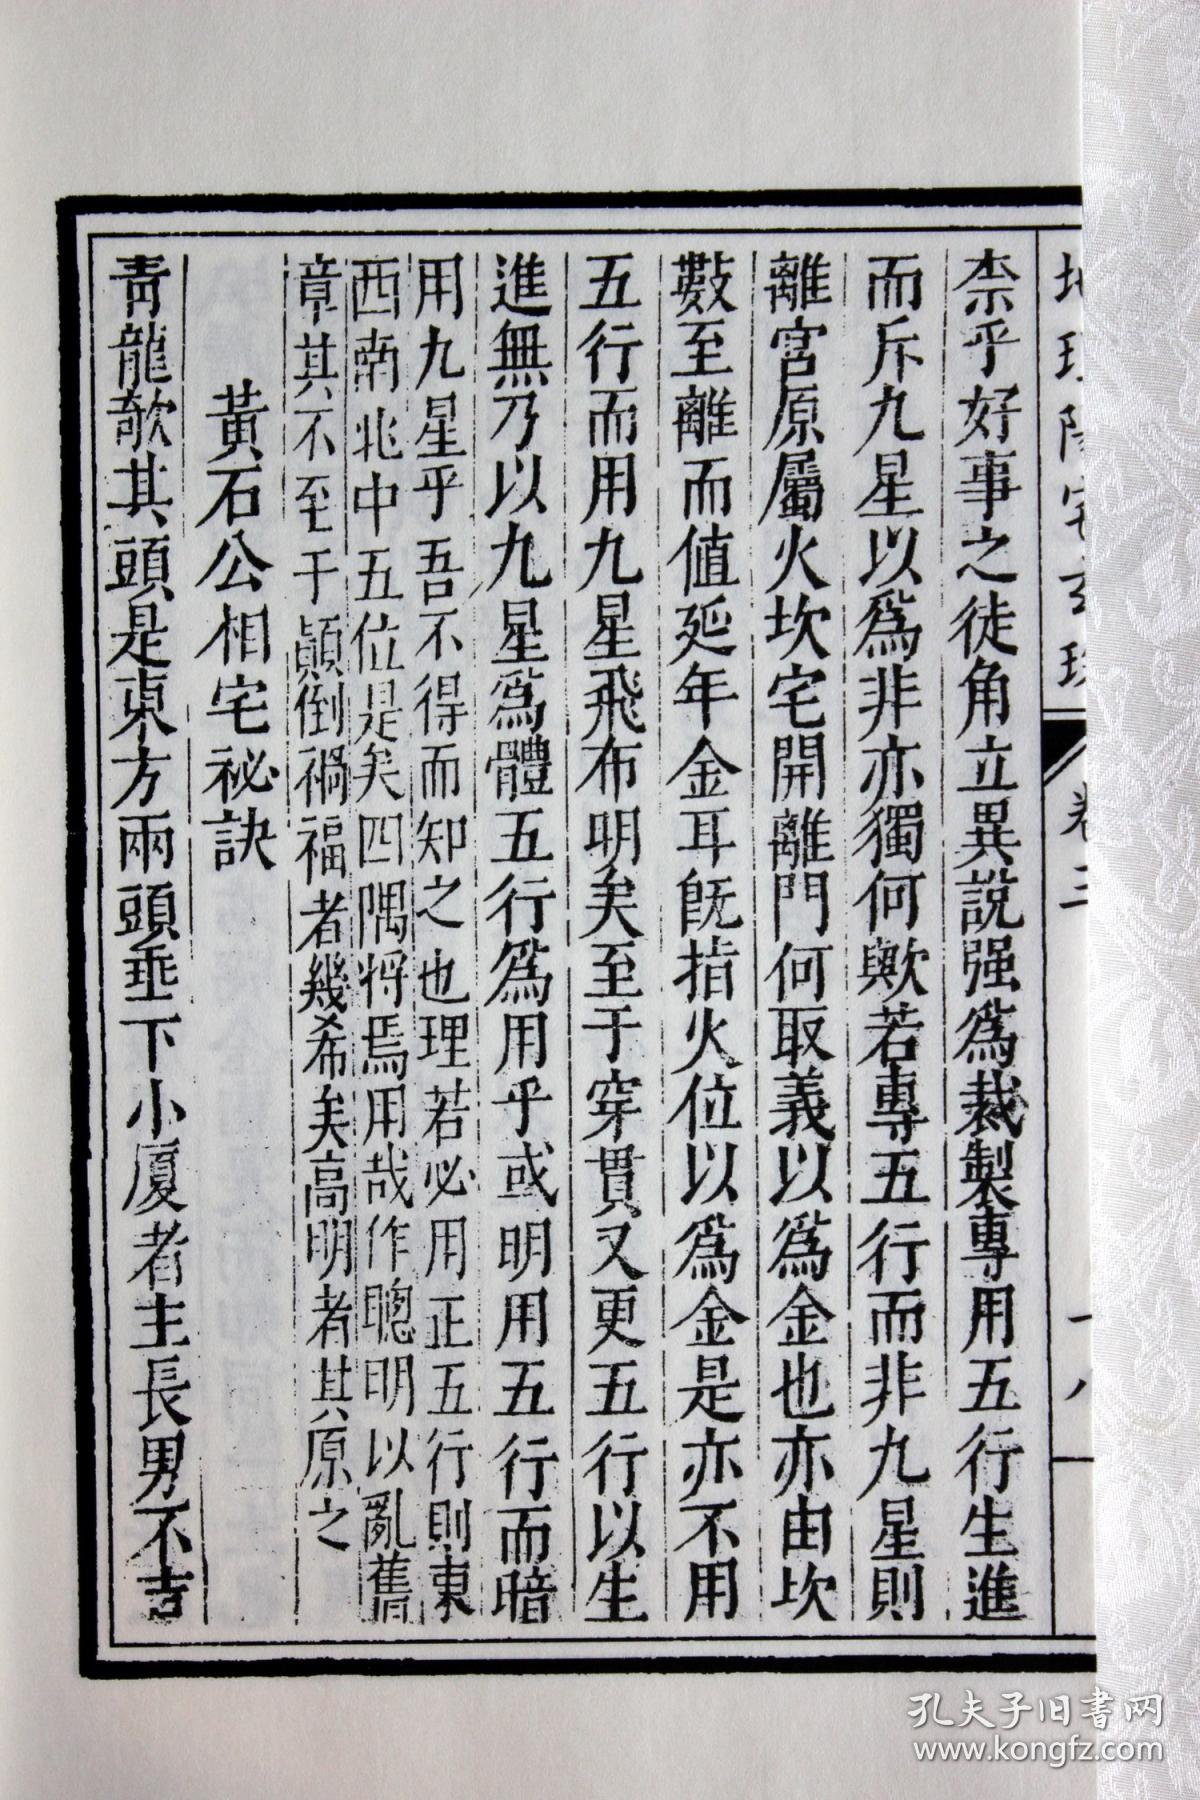 柰乎好事之徒角立異說强爲裁製專用五行生進
而斥九星以爲非亦獨何歟若專五行而非九星則
離宮原屬火坎宅開離門何取義以爲金也亦由坎
數至離而値延年金耳旣指火位以爲金是亦不用
五行而用九星飛布明矣至于穿貫又更五行以生
進無乃以九星爲體五行爲用乎或明用五行而暗
用九星乎吾不得而知之也理若必用正五行則東
西南北中五位是矣四隅将焉用哉作聰明以亂舊
章其不至于顚倒禍福者幾希矣高明者其原之
黃石公相宅祕訣
靑龍欹其頭是東方兩頭垂下小厦者主長男不吉
卷三
十八
孔夫子旧書网
www.kongfz.com